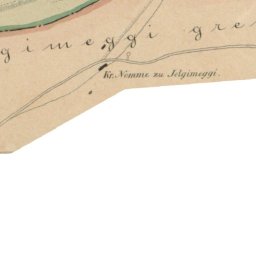 gimeggi gre
Kr. Nömme zu Jelgimeggi.